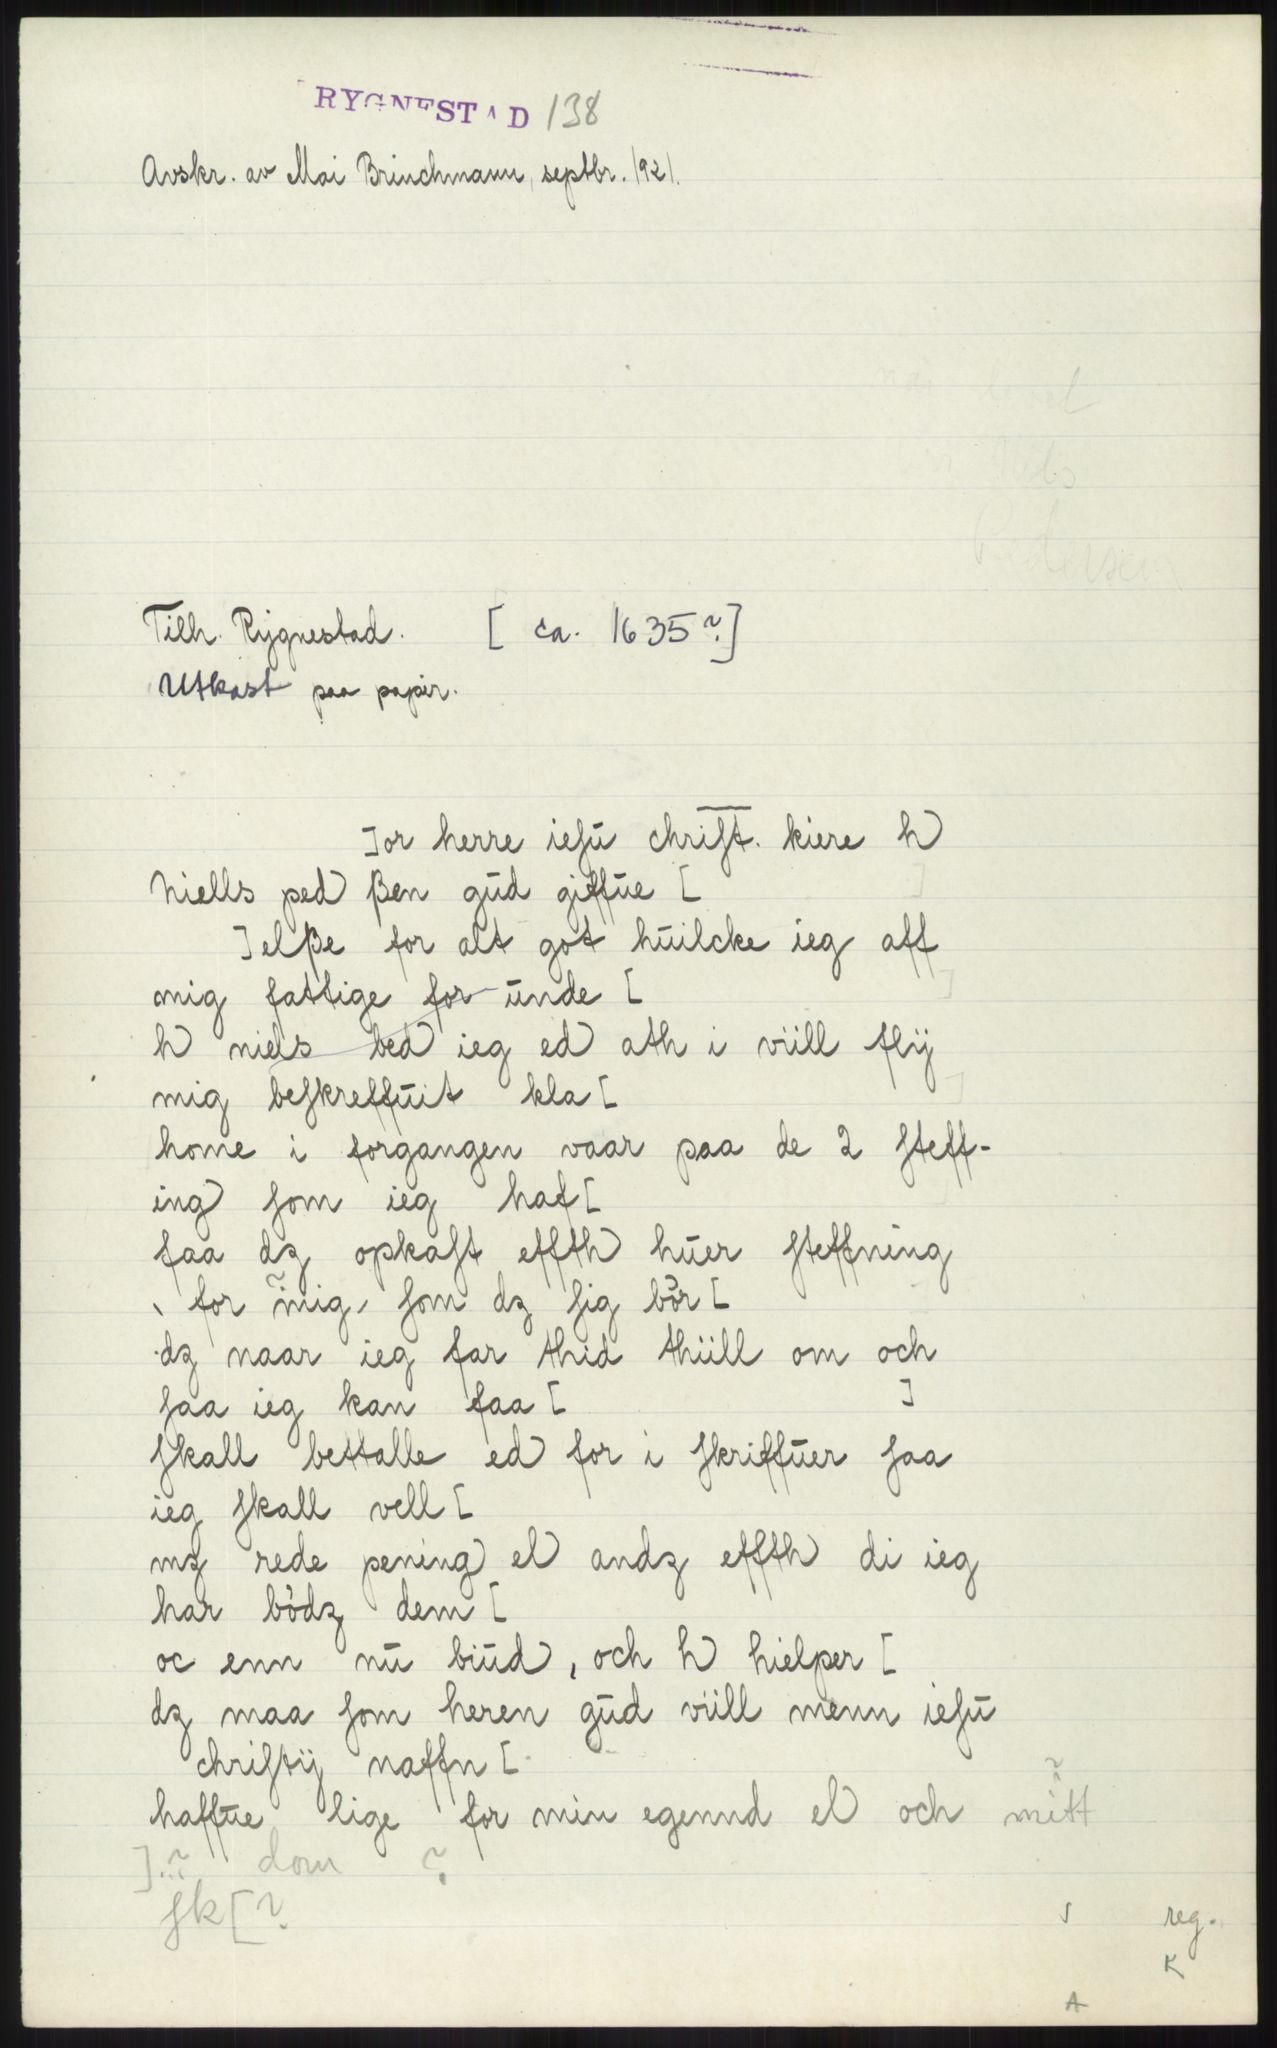 RYGNESTAD 138
Avskr. av Mai Brinchmann, septbr. 1921.
Tilh. Rygnestad. [ ca. 1635?]
Utkast paa papir.
]or herre iesū christ. kiere h
niells ped ßen gūd giffūe [ ]
]elße for alt got hūilcke ieg aff
mig fattige for ūnde [ ]
h niels bed ieg ed ath i viill flÿ
mig beskreffūit kla[ ]
home i forgangen vaar paa de 2 steff-
ing som ieg haf[
faa dz opkast effth hūer steffning
for mig, som dz sig bör[
dz naar ieg far thid thiill om och
saa ieg kan faa [ ]
skall bettalle ed for i skriffūer saa
ieg skall vell [
mz rede pening el andz effth di ieg
har bödz dem [
oc enn nū biūd, och h hielper [
dz maa som heren gūd viill menn iesū
christÿ naffn [
haffūe lige for min egennd el och mitt ?
]..? dom ?
sk[?
reg.
K
A